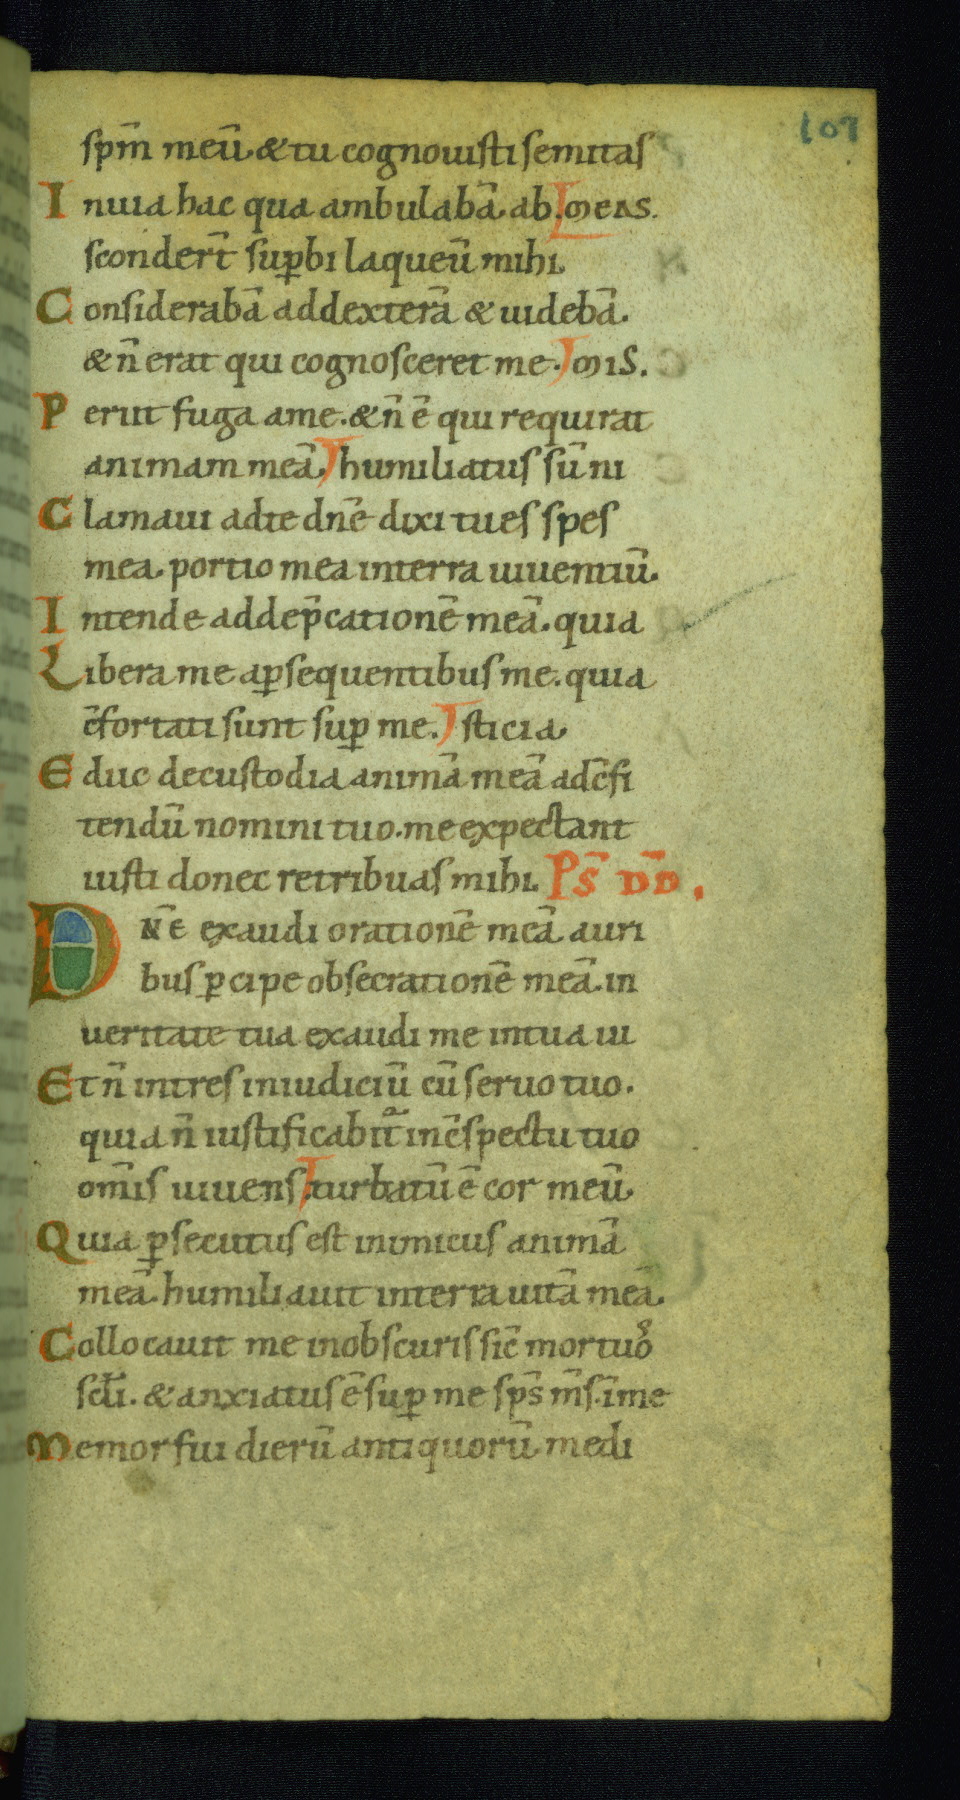 107
spm̄ meū & tu cognouisti semitas
In uia hac qua ambulabā. ab meas.
sconder̄t sup̱bi laqueū mihi.
Considerabā addexterā & uidebā.
& n̄ erat qui cognosceret me. mis.
Periit fuga ame. & n̄ ē qui requirat
animam meā. humiliatus sū ni
Clamaui adte dnē dixi tu es spes
mea. portio mea interra uiuentiū.
Intende addep̄cationē meā. quia
Libera me ap̱sequentibus me. quia
c̄fortati sunt sup̱ me. sticia.
Educ decustodia animā meā adc̄fi
tendū nomini tuo. me expectant
iusti donec retribuas mihi. Ps̄ DD̄.
Dn̄e exaudi orationē meā. auri
bus p̱cipe obsecrationē meā. in
ueritate tua exaudi me intua iu
Et n̄ intres iniudiciū cū seruo tuo.
quia n̄ iustificabit̄ inc̄spectu tuo
om̄is uiuens. turbatū ē cor meū.
Quia p̱secutus est inimicus animā
meā. humiliauit interra uitā meā.
Collocauit me inobscuris sic̄ mortuo᷒
scl̄i. & anxiatus ē sup̱ me sps̄ m̄s. īme
Memor fui dierū antiquorū. medi